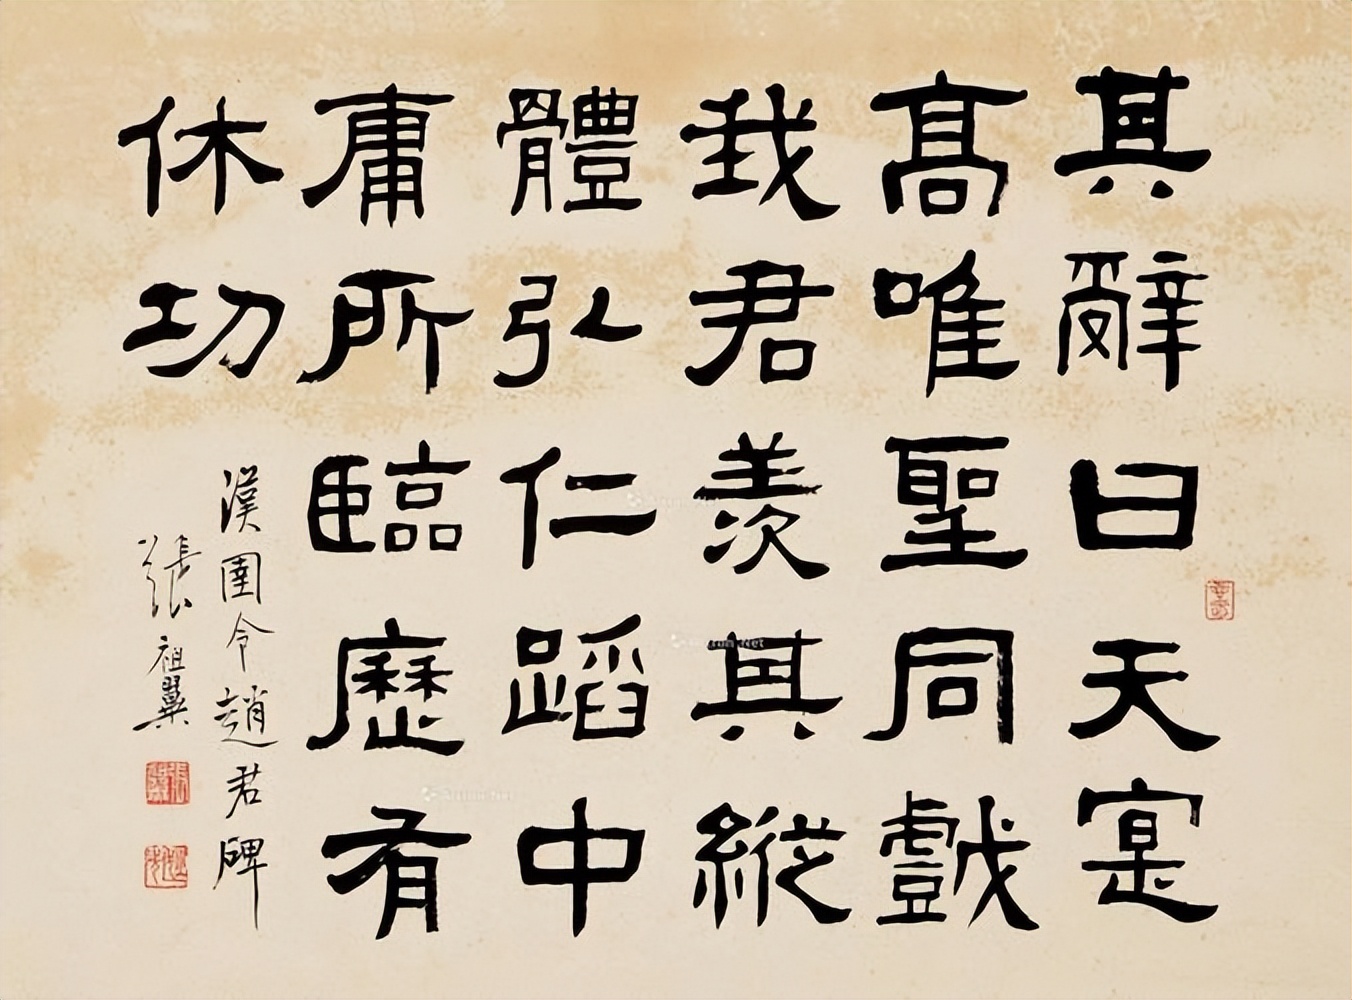 其辭曰天寔
高唯聖同戲
我君羨其縱
體弘仁蹈中
庸所臨歷有
休功
漢圉令趙君碑
張祖翼